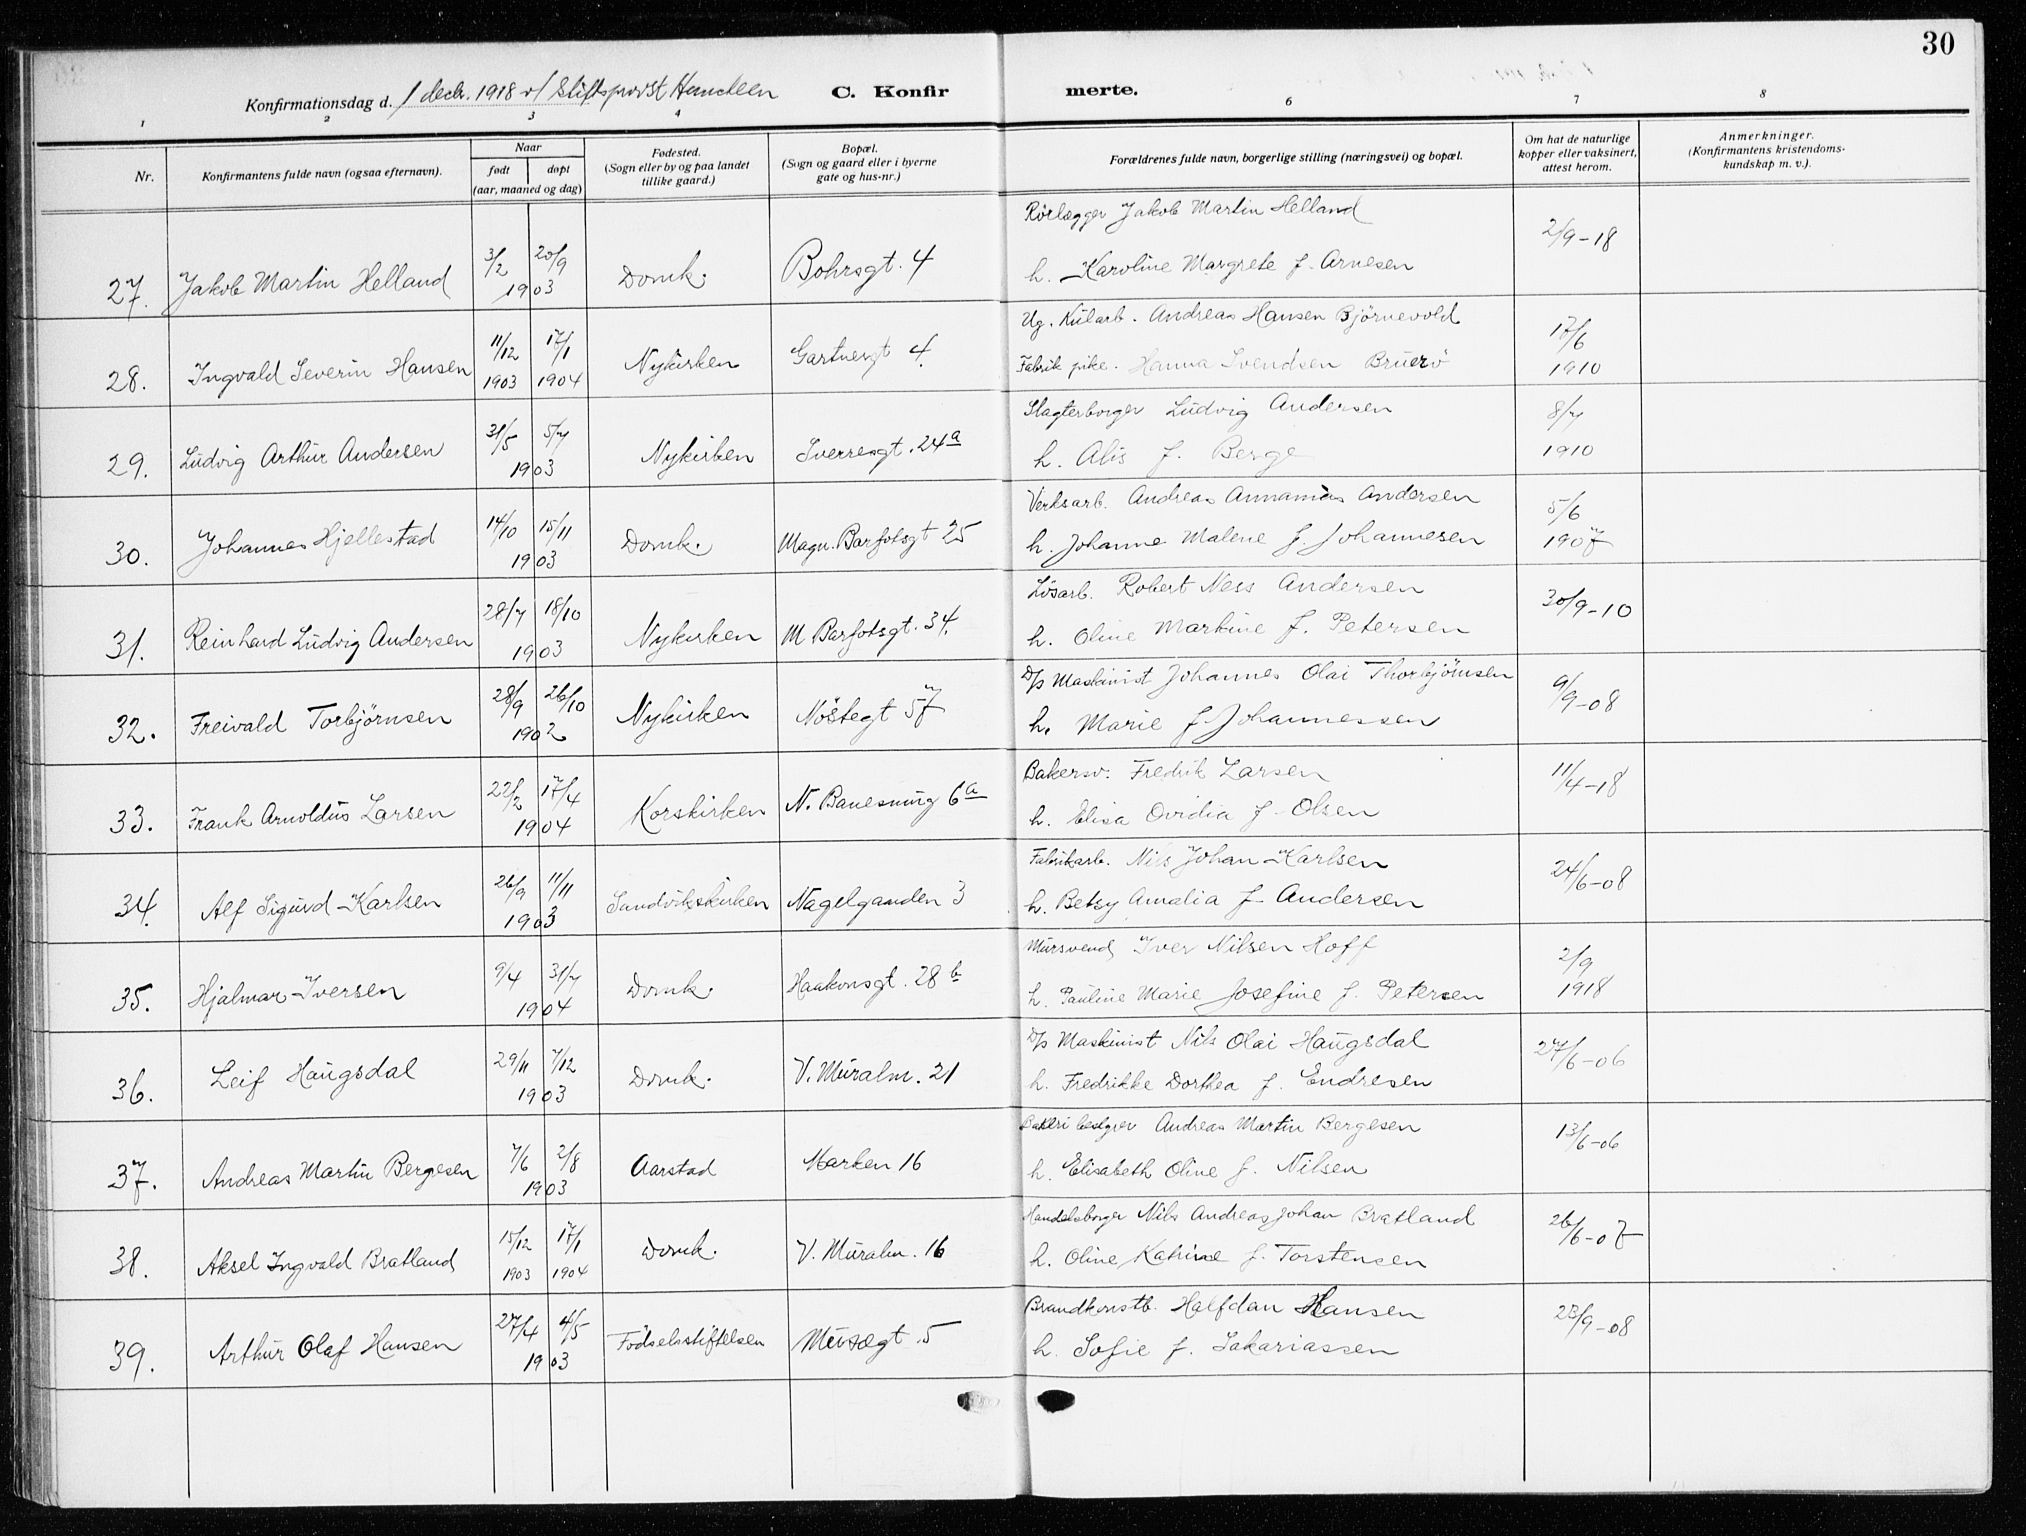 30
Konfirmationsdag d. 1 decbr. 1918 v/ Stiftsprovst C. Konfirmerte.
1 2 3 4 6 7 8
Nr. Konfirmantens fulde navn (ogsaa efternavn). Naar født døpt (aar, maaned og dag) Fødested. (Sogn eller by og paa landet tillike gaard.) Bopæl. (Sogn og gaard eller i byerne gate og hus-nr.) Forældrenes fulde navn, borgerlige stilling (næringsvei) og bopæl. Om hat de naturlige kopper eller vaksinert, attest herom. Anmerkninger. (Konfirmantens kristendomskundskap m. v.).
27. Jakob Martin Helland 3/2 20/9 1903 Domk. Bohrsgt. 4 Rörlægger Jakob Martin Helland 2/9-18
h. Karoline Margrete f. Arnesen
28. Ingvald Severin Hansen 11/12 1903 17/1 1904 Nykirken Gartnergt 4. Ug. Kularb. Andreas Hansen Björnevold 17/6 1910
Fabrik pike. Hanna Svendsen Bruerö
29. Ludvig Arthur Andersen 31/5 5/7 1903 Nykirken Sverresgt. 24a Slagterborger Ludvig Andersen 8/7 1910
h. Alis f. Berge
30. Johannes Hjellestad 14/10 15/11 1903 Domk. Magn. Barfotsgt 25 Verksarb. Andreas Annanias Andersen 5/6 1907
h. Johanne Malene f. Johannesen
31. Reinhard Ludvig Andersen 28/7 18/10 1903 Nykirken M Barfotsgt. 34. Lösarb. Robert Ness Andersen 30/9-10
h. Oline Martine f. Petersen
32. Freivald Torbjørnsen 28/9 26/10 1902 Nykirken Nöstegt 57 D/s Maskinist Johannes Olai Thorbjörnsen 9/9-08
h. Marie f. Johannessen
33. Frank Arnoldus Larsen 22/2 17/4 1904 Korskirken N. Banesmug 6a Bakersv. Fredrik Larsen 11/4-18
h. Elisa Ovidia f. Olsen
34. Alf Sigurd Karlsen 26/9 11/11 1903 Sandvikskirken Nagelgaarden 3 Fabrikarb. Nils Johan Karlsen 24/6-08
h. Betsy Amalia f. Andersen
35. Hjalmar Iversen 9/4 31/7 1904 Domk. Haakonsgt. 28b Mursvend Iver Nilsen Hoff 2/9 1918
h. Pauline Marie Josefine f. Petersen
36. Leif Haugsdal 29/11 7/12 1903 Domk. V. Muralm. 21 D/s Maskinist Nils Olai Haugsdal 27/6-06
h. Fredrikke Dorthea f. Endresen
37. Andreas Martin Bergesen 7/6 2/8 1903 Aarstad Marken 16 Bakeri bestyrer Andreas Martin Bergesen 13/6-06
h. Elisabeth Oline f. Nilsen
38. Aksel Ingvald Bratland 15/12 1903 17/1 1904 Domk. V. Muralm. 16 Handelsborger Nils Andreas Johan Bratland 26/6-07
h. Oline Katrine f. Torstensen
39. Arthur Olaf Hansen 27/4 4/5 1903 Födselsstiftelsen 5 Brandkonstb. Halfdan Hansen 23/9-08
h. Sofie f. Sakariassen